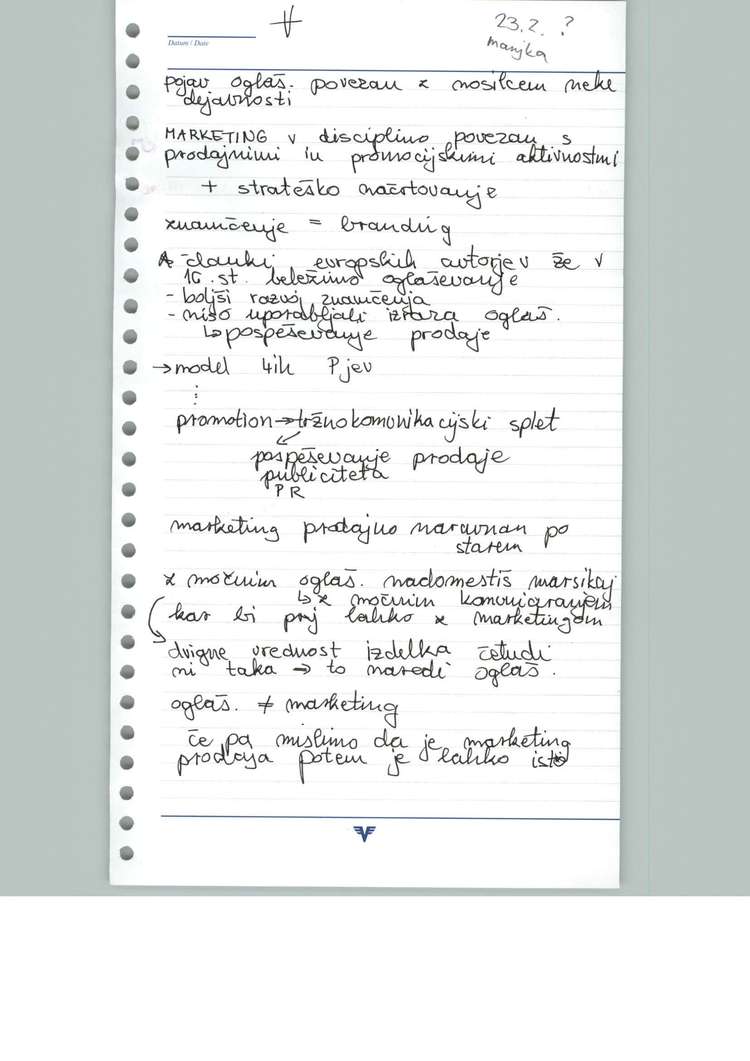 23.2. ?
manjka
Datum / Date
pojav oglaš. povezan z nosilcem neke
dejavnosti
MARKETING v disciplino povezan s
prodajnimi in promocijskimi aktivnostmi
+ strateško načrtovanje
znamčenje = branding
članki evropskih avtorjev že v
16. st. beležimo oglaševanje
- boljši razvoj znamčenja
- niso uporabljali izraza oglaš.
↳ pospeševanje prodaje
→ model 4ih Pjev
⋮
promotion → tržnokomunikacijski splet
↙
pospeševanje prodaje
publiciteta
PR
marketing prodajno naravnan po
starem
z močnim oglaš. nadomestiš marsikaj
↳ z močnim komuniciranjem
kar bi prej lahko z marketingom
dvigne vrednost izdelka četudi
ni taka → to naredi oglaš.
oglaš. ≠ marketing
če pa mislimo da je marketing
prodaja potem je lahko isto